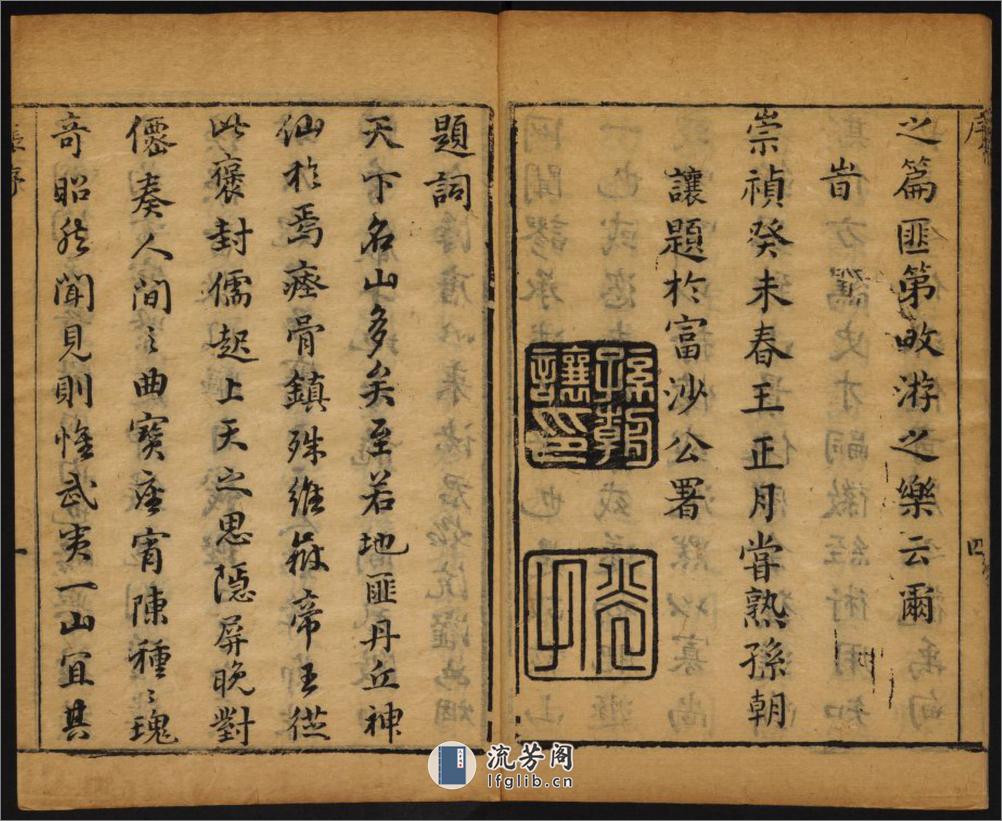 序
之篇匪第畋游之樂云爾
旹
崇禎癸未春王正月嘗熟孫朝
讓題於富沙公署
孫朝讓印
光
四
題詞
天下名山多矣至若地匪丹丘神
仙於焉瘞骨鎮殊維嶽帝王從
此褒封儒起上天之思隱屏晚對
僊奏人間之曲寶座宵陳種〻瑰
奇昭然聞見則惟武夷一山宜其
序
一
流芳阁
lfglib.cn